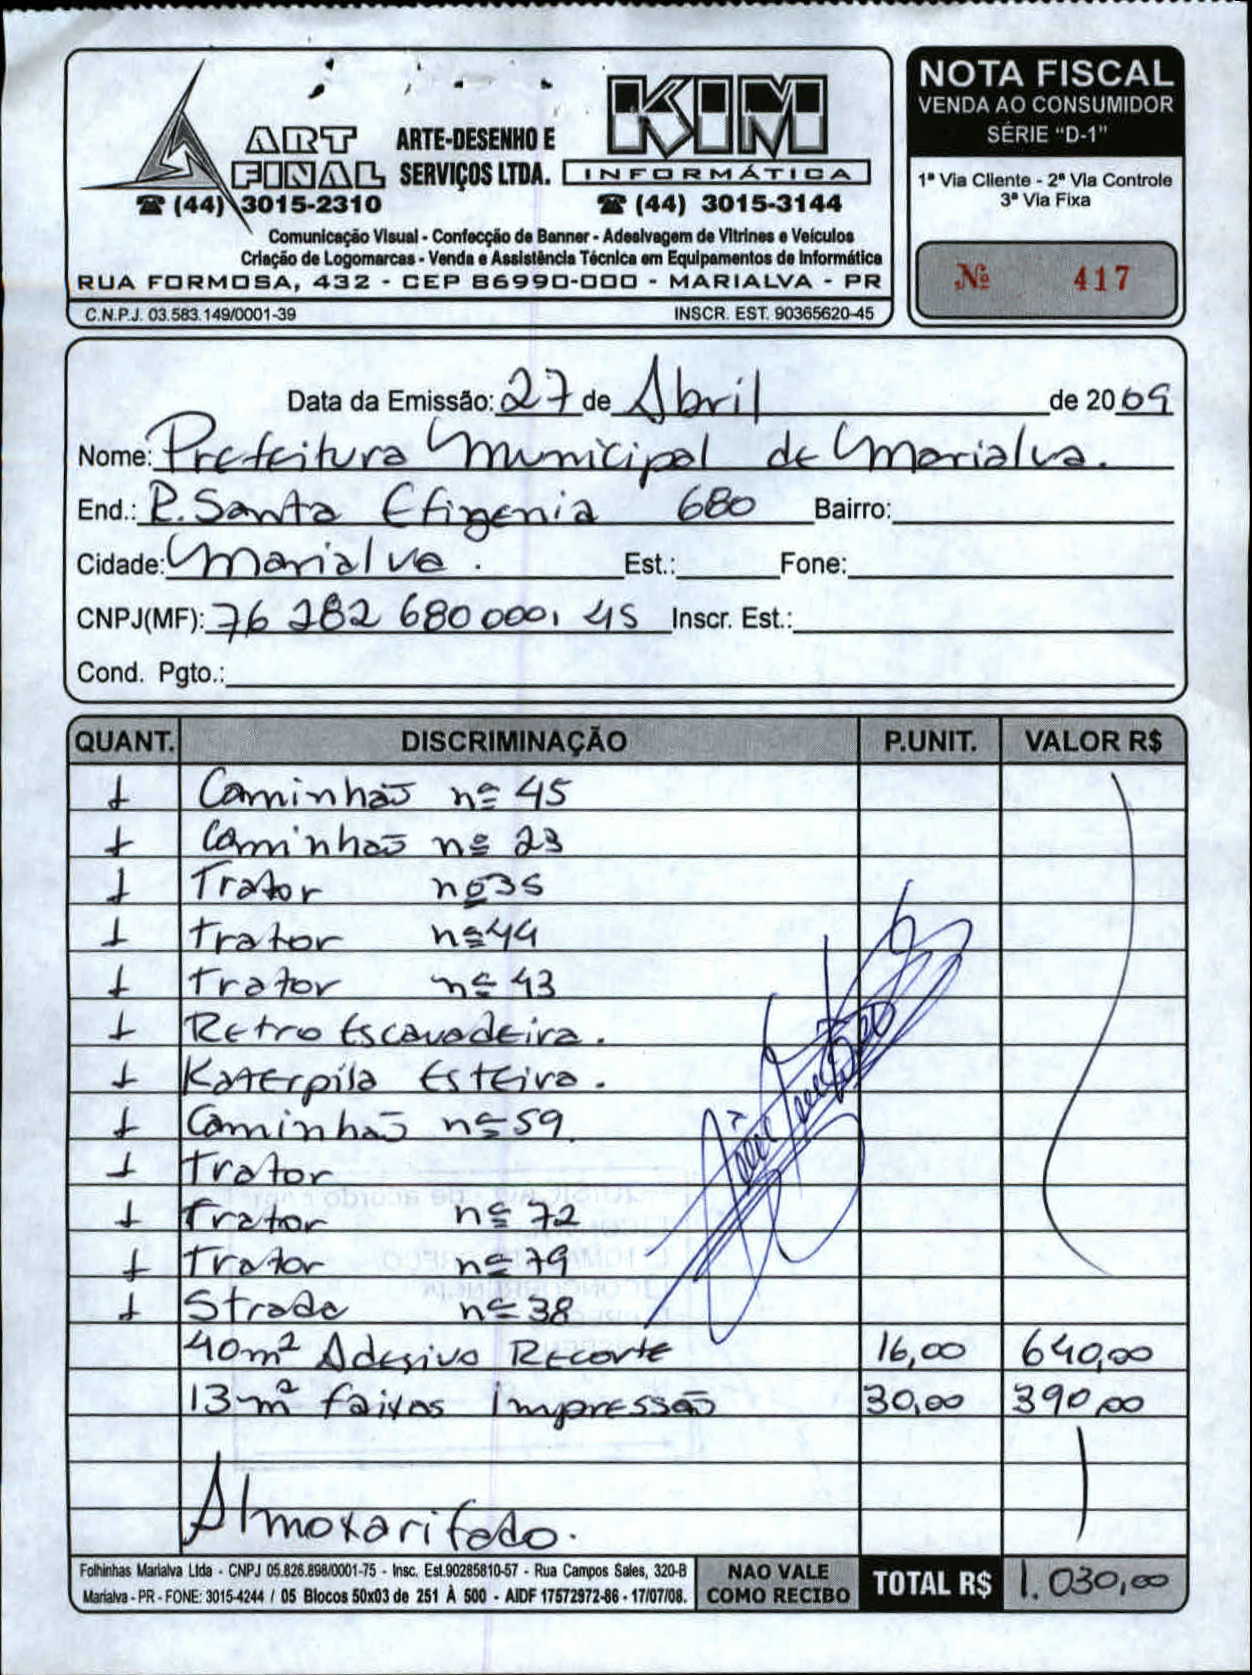 ART FINAL
ARTE-DESENHO E SERVIÇOS LTDA.
KIM INFORMÁTICA
☎ (44) 3015-2310
☎ (44) 3015-3144
Comunicação Visual - Confecção de Banner - Adesivagem de Vitrines e Veículos
Criação de Logomarcas - Venda e Assistência Técnica em Equipamentos de Informática
RUA FORMOSA, 432 - CEP 86990-000 - MARIALVA - PR
C.N.P.J. 03.583.149/0001-39 INSCR. EST. 90365620-45
NOTA FISCAL
VENDA AO CONSUMIDOR
SÉRIE "D-1"
1ª Via Cliente - 2ª Via Controle
3ª Via Fixa
Nº 417
Data da Emissão: 27 de Abril de 2009
Nome: Prefeitura Municipal de Marialva.
End.: R. Santa Efigenia 680 Bairro:
Cidade: Marialva. Est.: Fone:
CNPJ(MF): 76 282 680 0001 45 Inscr. Est.:
Cond. Pgto.:
QUANT. DISCRIMINAÇÃO P.UNIT. VALOR R$
1 Caminhão nº 45
1 Caminhão nº 23
1 Trator nº 35
1 Trator nº 44
1 Trator nº 43
1 Retro Escavadeira.
1 Katerpila Esteira.
1 Caminhão nº 59
1 Trator
1 Trator nº 72
1 Trator nº 79
1 Strada nº 38
40m² Adesivo Recorte 16,00 640,00
13m² faixas impressão 30,00 390,00
Almoxarifado.
Folhinhas Marialva Ltda - CNPJ 05.826.898/0001-75 - Insc. Est.90285810-57 - Rua Campos Sales, 320-B
Marialva - PR - FONE: 3015-4244 / 05 Blocos 50x03 de 251 À 500 - AIDF 17572972-86 - 17/07/08.
NAO VALE
COMO RECIBO
TOTAL R$ 1.030,00